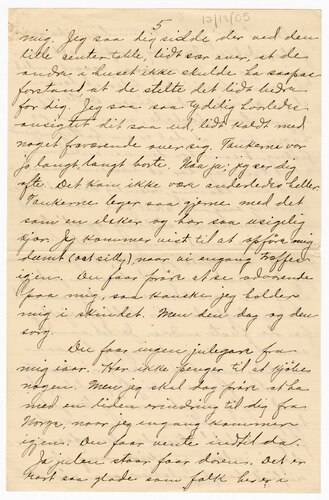 5
12/18/05
mig. Jeg saa dig sidde der ved den
lille sentertable, lidt sær over, at de
andre i huset ikke skulde ha saapas
forstand at de stelte det lidt bedre
for dig. Jeg saa saa tydelig hvorledes
ansigtet dit saa ud, lidt koldt med
noget fraværende over sig. Tankerne var
jo langt, langt borte. Naa ja: jeg ser dig
ofte. Det kan ikke være anderledes heller.
Tankerne leger saa gjerne med det
som en elsker og har saa usigelig
kjær. Jeg kommer vist til at opføre mig
dumt (ost silly), naar vi engang træffes
igjen. Du faar prøve at se advarende
paa mig, saa kanske jeg holder
mig i skindet. Men den dag og den
sorg.
Du faar ingen julegave fra
mig iaar. Har ikke penger til at kjøbe
nogen. Men jeg skal dog prøve at ha
med en liden erindring til dig fra
Norge, naar jeg engang kommer
igjen. Du faar vente indtil da.
Ja julen staar for døren. Det er
rart saa glade som folk her er i